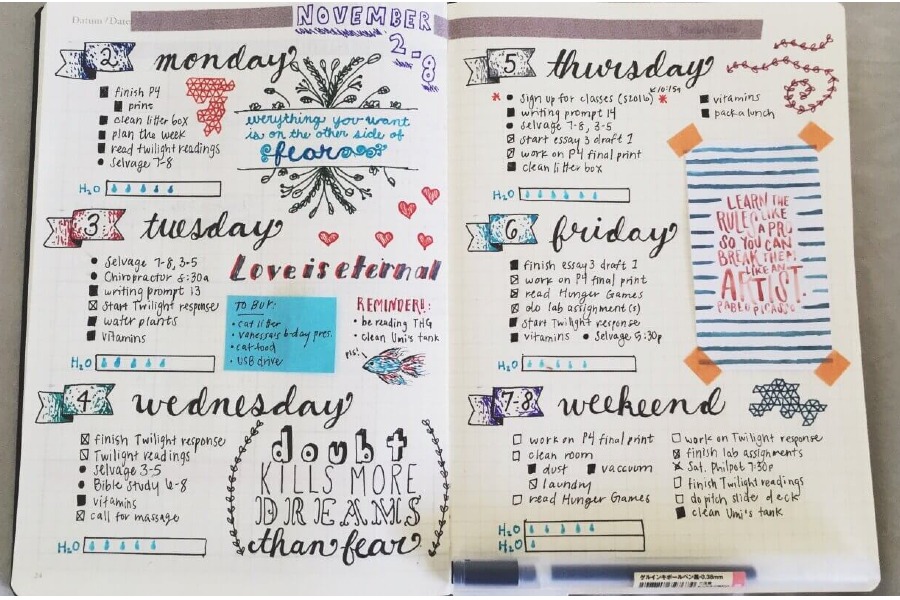 Datum / Date
NOVEMBER
2-8
2 monday
finish P4
print
clean litter box
plan the week
read twilight readings
Selvage 7-8
H₂O
everything you want
is on the other side of
fear
3 tuesday
Selvage 7-8, 3-5
Chiropractor 8:30a
writing prompt 13
start Twilight response
water plants
vitamins
H₂O
Love is eternal
TO BUY:
cat litter
vanessa's b-day pres.
cat food
USB drive
REMINDER!:
be reading THG
clean Umi's tank
pls!
4 wednesday
finish Twilight response
Twilight readings
Selvage 3-5
Bible Study 6-8
vitamins
call for massage
H₂O
doubt
KILLS MORE
DREAMS
than fear
5 thursday
sign up for classes (S2016)
writing prompt 14
selvage 7-8, 3-5
start essay 3 draft 1
work on P4 final print
clean litter box
vitamins
pack a lunch
H₂O
6 friday
finish essay 3 draft 1
work on P4 final print
read Hunger Games
do lab assignment(s)
start Twilight response
vitamins Selvage 5:30p
H₂O
LEARN THE
RULES LIKE
A PRO
SO YOU CAN
BREAK THEM
LIKE AN
ARTIST.
PABLO PICASSO
7-8 weekend
work on P4 final print
clean room
dust vaccum
laundry
read Hunger Games
work on Twilight response
finish lab assignments
Sat. Philpot 7:30p
finish Twilight readings
do pitch slide deck
clean Umi's tank
H₂O
H₂O
ゲルインキボールペン黒・0.38mm